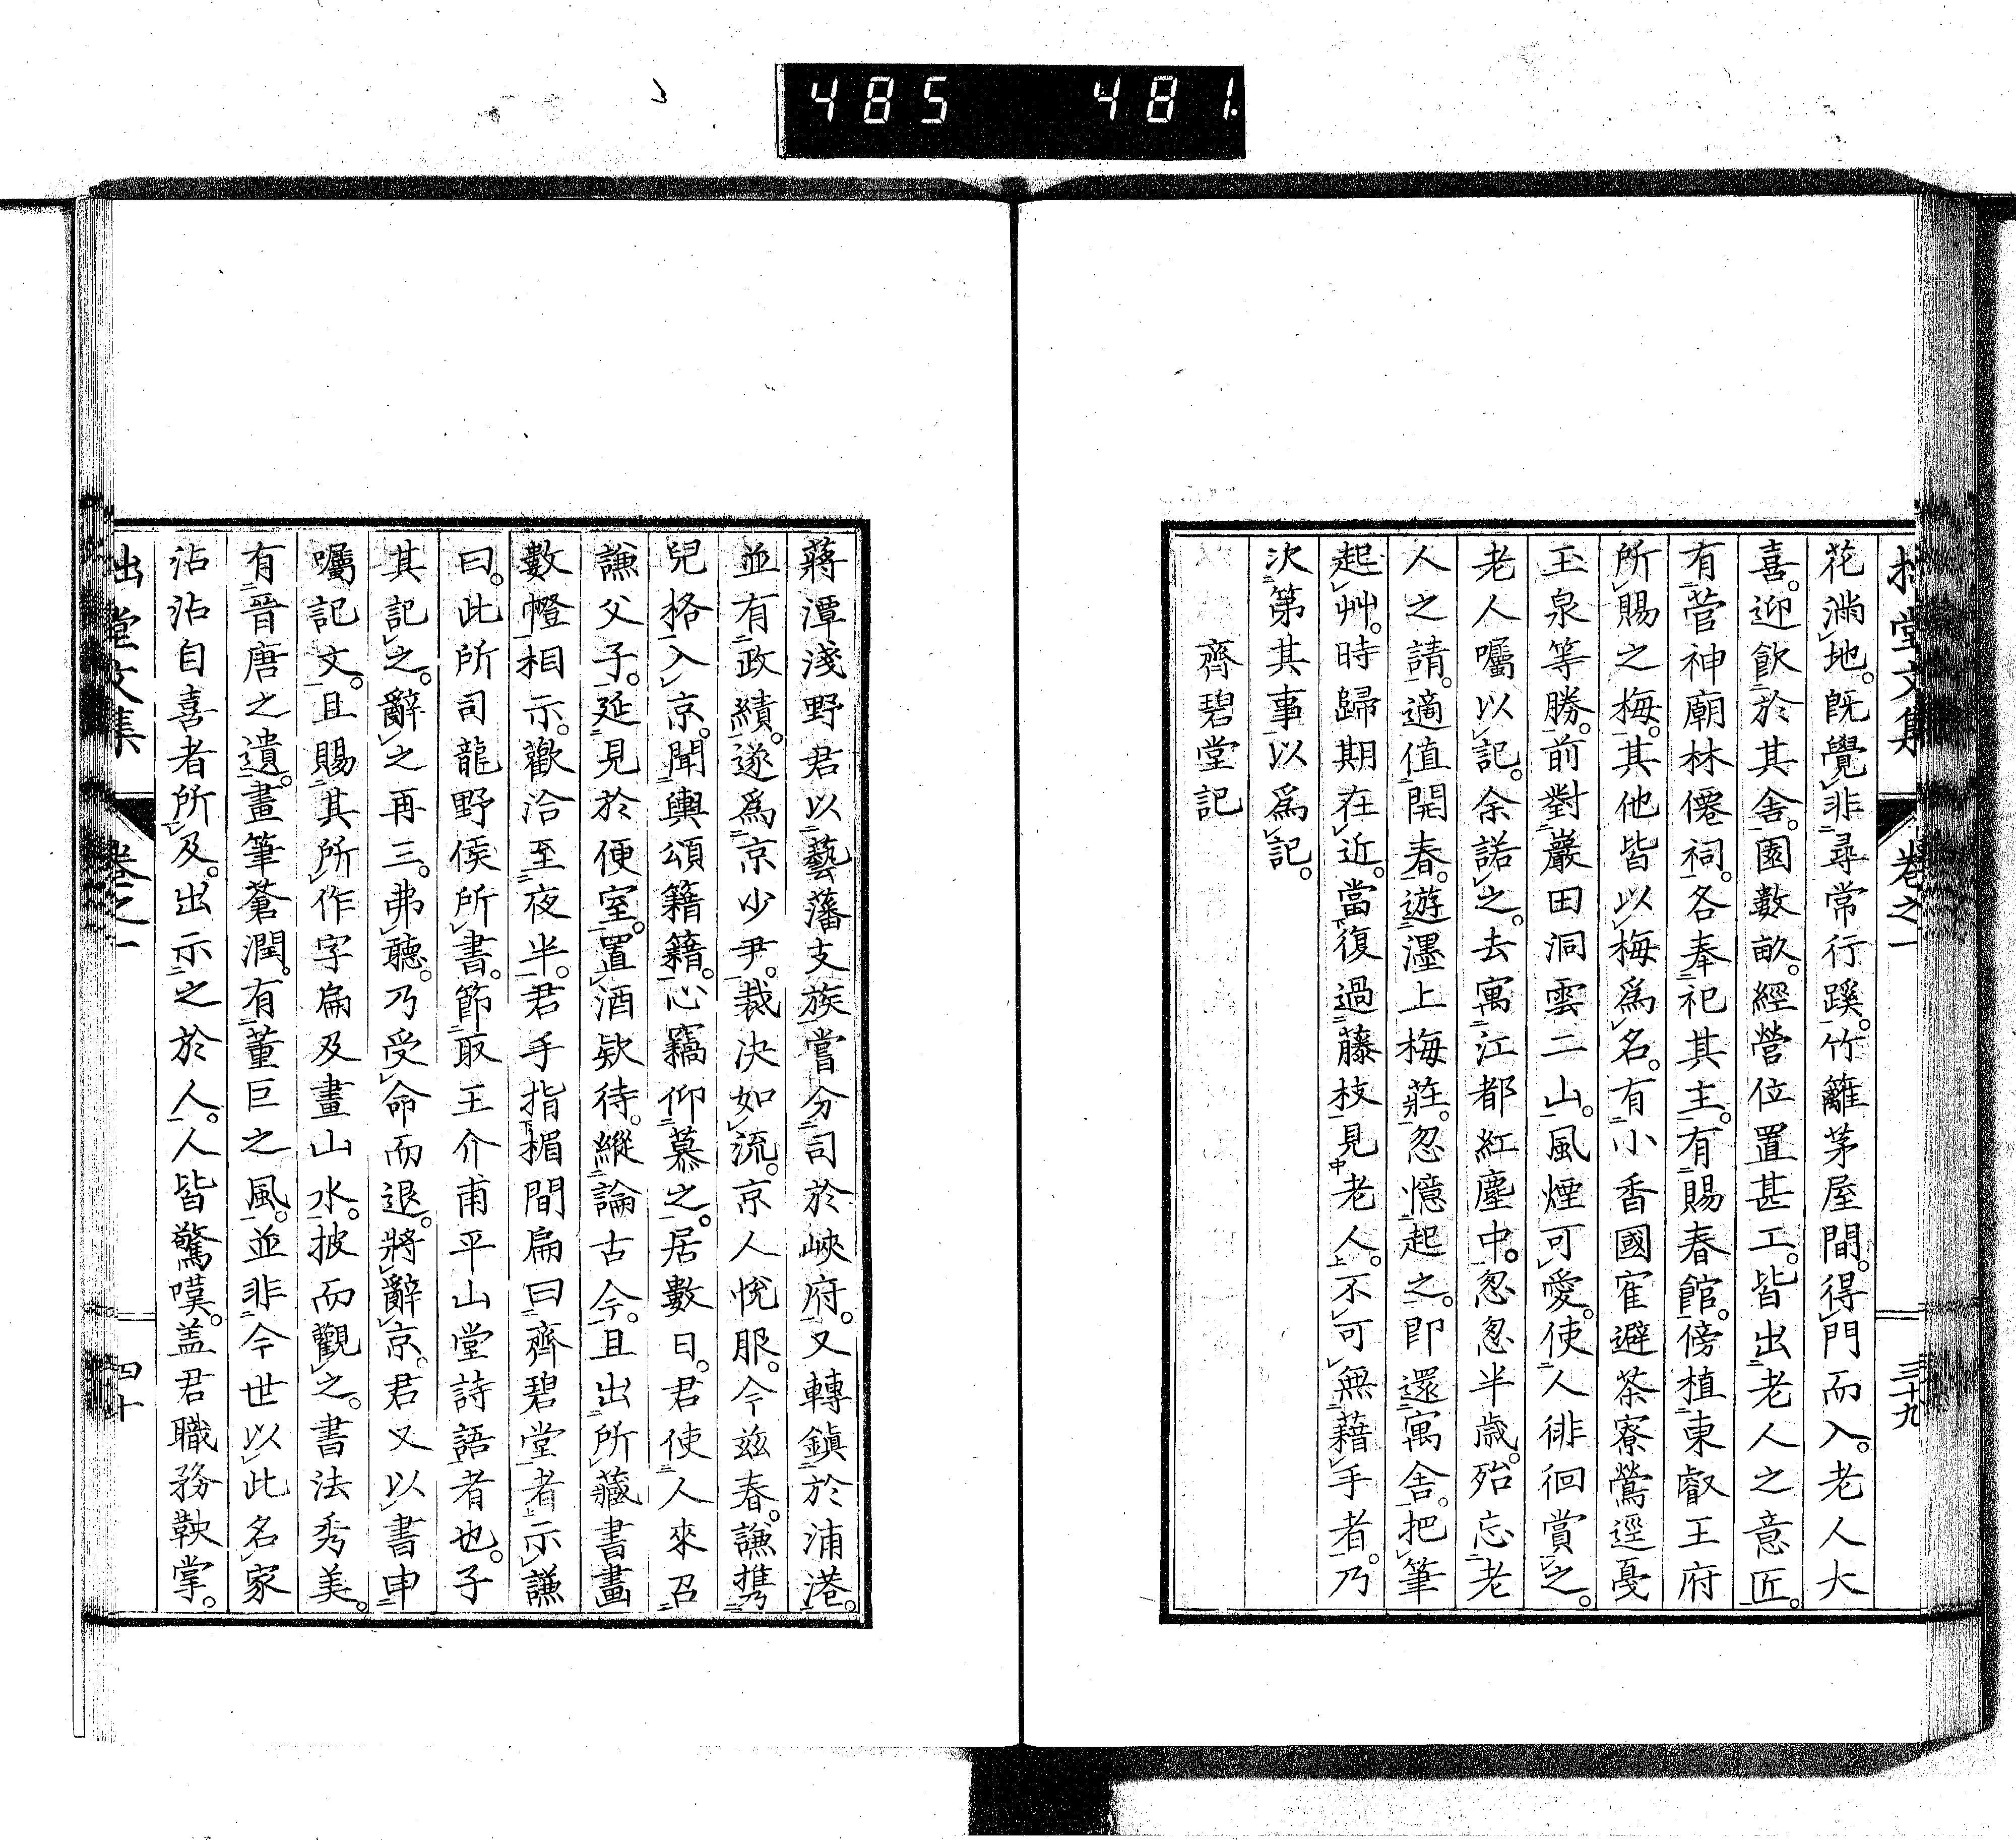 485 481.
拙堂文集 卷之一 三十九
花滿地。既覺非尋常行蹊。竹籬茅屋間。得門而入。老人大
喜。迎飲於其舍。園數畝。經營位置甚工。皆出老人之意匠。
有菅神廟林僊祠。各奉祀其主。有賜春館。傍植東叡王府
所賜之梅。其他皆以梅爲名。有小香國寉避茶寮鶯逕戞
玉泉等勝。前對巖田洞雲二山。風煙可愛。使人徘徊賞之。
老人囑以記。余諾之。去寓江都紅塵中。忽忽半歲。殆忘老
人之請。適值開春。遊墨上梅莊。忽憶起之。即還寓舍。把筆
起艸。時歸期在近。當復過藤枝見老人。不可無藉手者。乃
次第其事以爲記。
齊碧堂記
蔣潭淺野君以藝藩支族嘗分司於峽府。又轉鎭於浦港。
並有政績。遂爲京少尹。裁決如流。京人悅服。今兹春。謙攜
兒格入京。聞輿頌籍籍。心竊仰慕之。居數日。君使人來召
謙父子。延見於便室。置酒欵待。縱論古今。且出所藏書畫
數幢相示。歡洽至夜半。君手指楣間扁曰齊碧堂者示謙
曰。此所司龍野侯所書。節取王介甫平山堂詩語者也。子
其記之。辭之再三。弗聽。乃受命而退。將辭京。君又以書申
囑記文。且賜其所作字扁及畫山水。披而觀之。書法秀美。
有晉唐之遺。畫筆蒼潤。有董巨之風。並非今世以此名家
沾沾自喜者所及。出示之於人。人皆驚嘆。盖君職務鞅掌。
拙堂文集 卷之一 四十